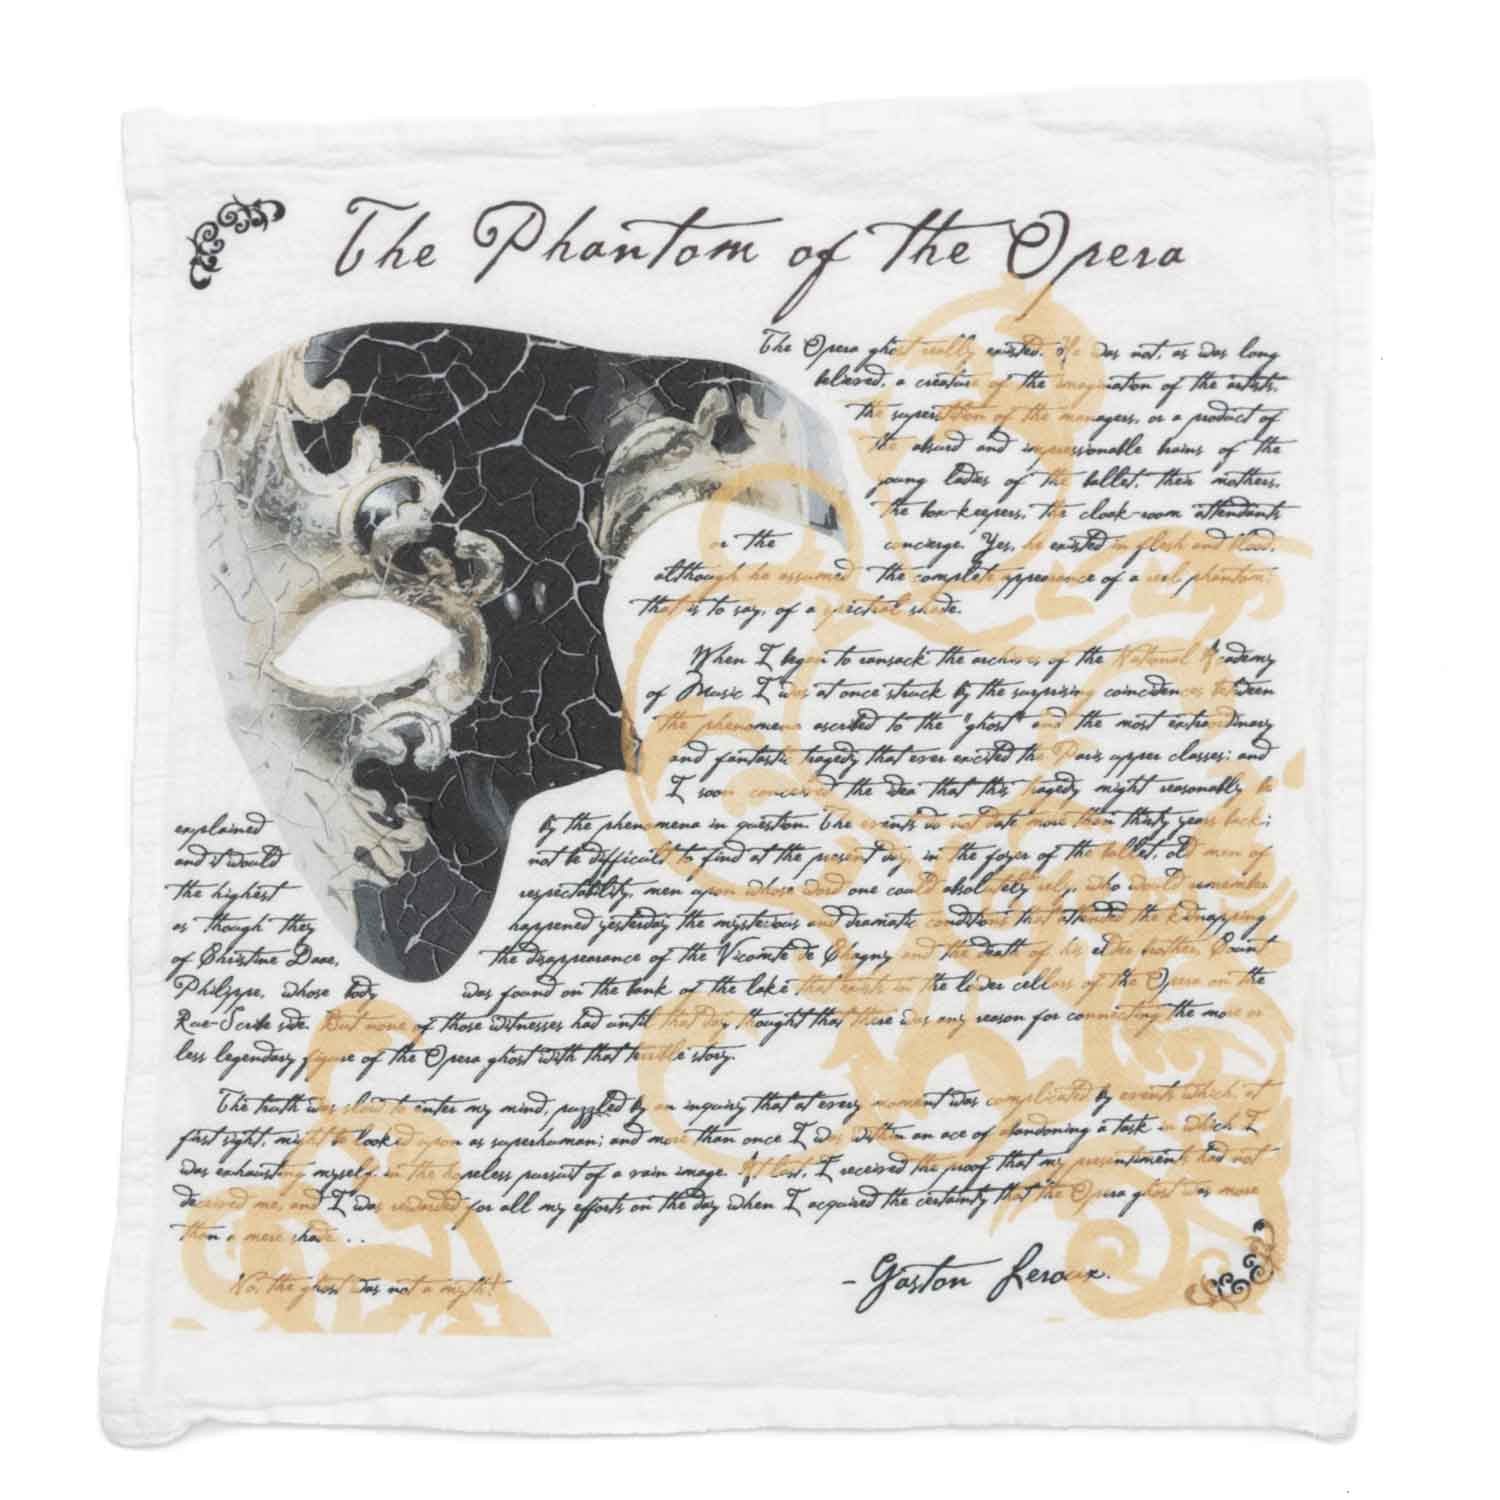 The Phantom of the Opera
The Opera ghost really existed. He was not, as was long
believed, a creature of the imagination of the artists,
the superstition of the managers, or a product of
the absurd and impressionable brains of the
young ladies of the ballet, their mothers,
the box-keepers, the cloak-room attendants
or the concierge. Yes, he existed in flesh and blood,
although he assumed the complete appearance of a real phantom;
that is to say, of a spectral shade.
When I began to ransack the archives of the National Academy
of Music I was at once struck by the surprising coincidences between
the phenomena ascribed to the "ghost" and the most extraordinary
and fantastic tragedy that ever excited the Paris upper classes; and
I soon conceived the idea that this tragedy might reasonably be
explained by the phenomena in question. The events do not date more than thirty years back;
and it would not be difficult to find at the present day, in the foyer of the ballet, old men of
the highest respectability, men upon whose word one could absolutely rely, who would remember
as though they happened yesterday the mysterious and dramatic conditions that attended the kidnapping
of Christine Daae, the disappearance of the Vicomte de Chagny and the death of his elder brother, Count
Philippe, whose body was found on the bank of the lake that exists in the lower cellars of the Opera on the
Rue-Scribe side. But none of those witnesses had until that day thought that there was any reason for connecting the more or
less legendary figure of the Opera ghost with that terrible story.
The truth was slow to enter my mind, puzzled by an inquiry that at every moment was complicated by events which, at
first sight, might be looked upon as superhuman; and more than once I was within an ace of abandoning a task in which I
was exhausting myself in the hopeless pursuit of a vain image. At last, I received the proof that my presentiments had not
deceived me, and I was rewarded for all my efforts on the day when I acquired the certainty that the Opera ghost was more
than a mere shade . . .
No, the ghost was not a myth!
- Gaston Leroux.